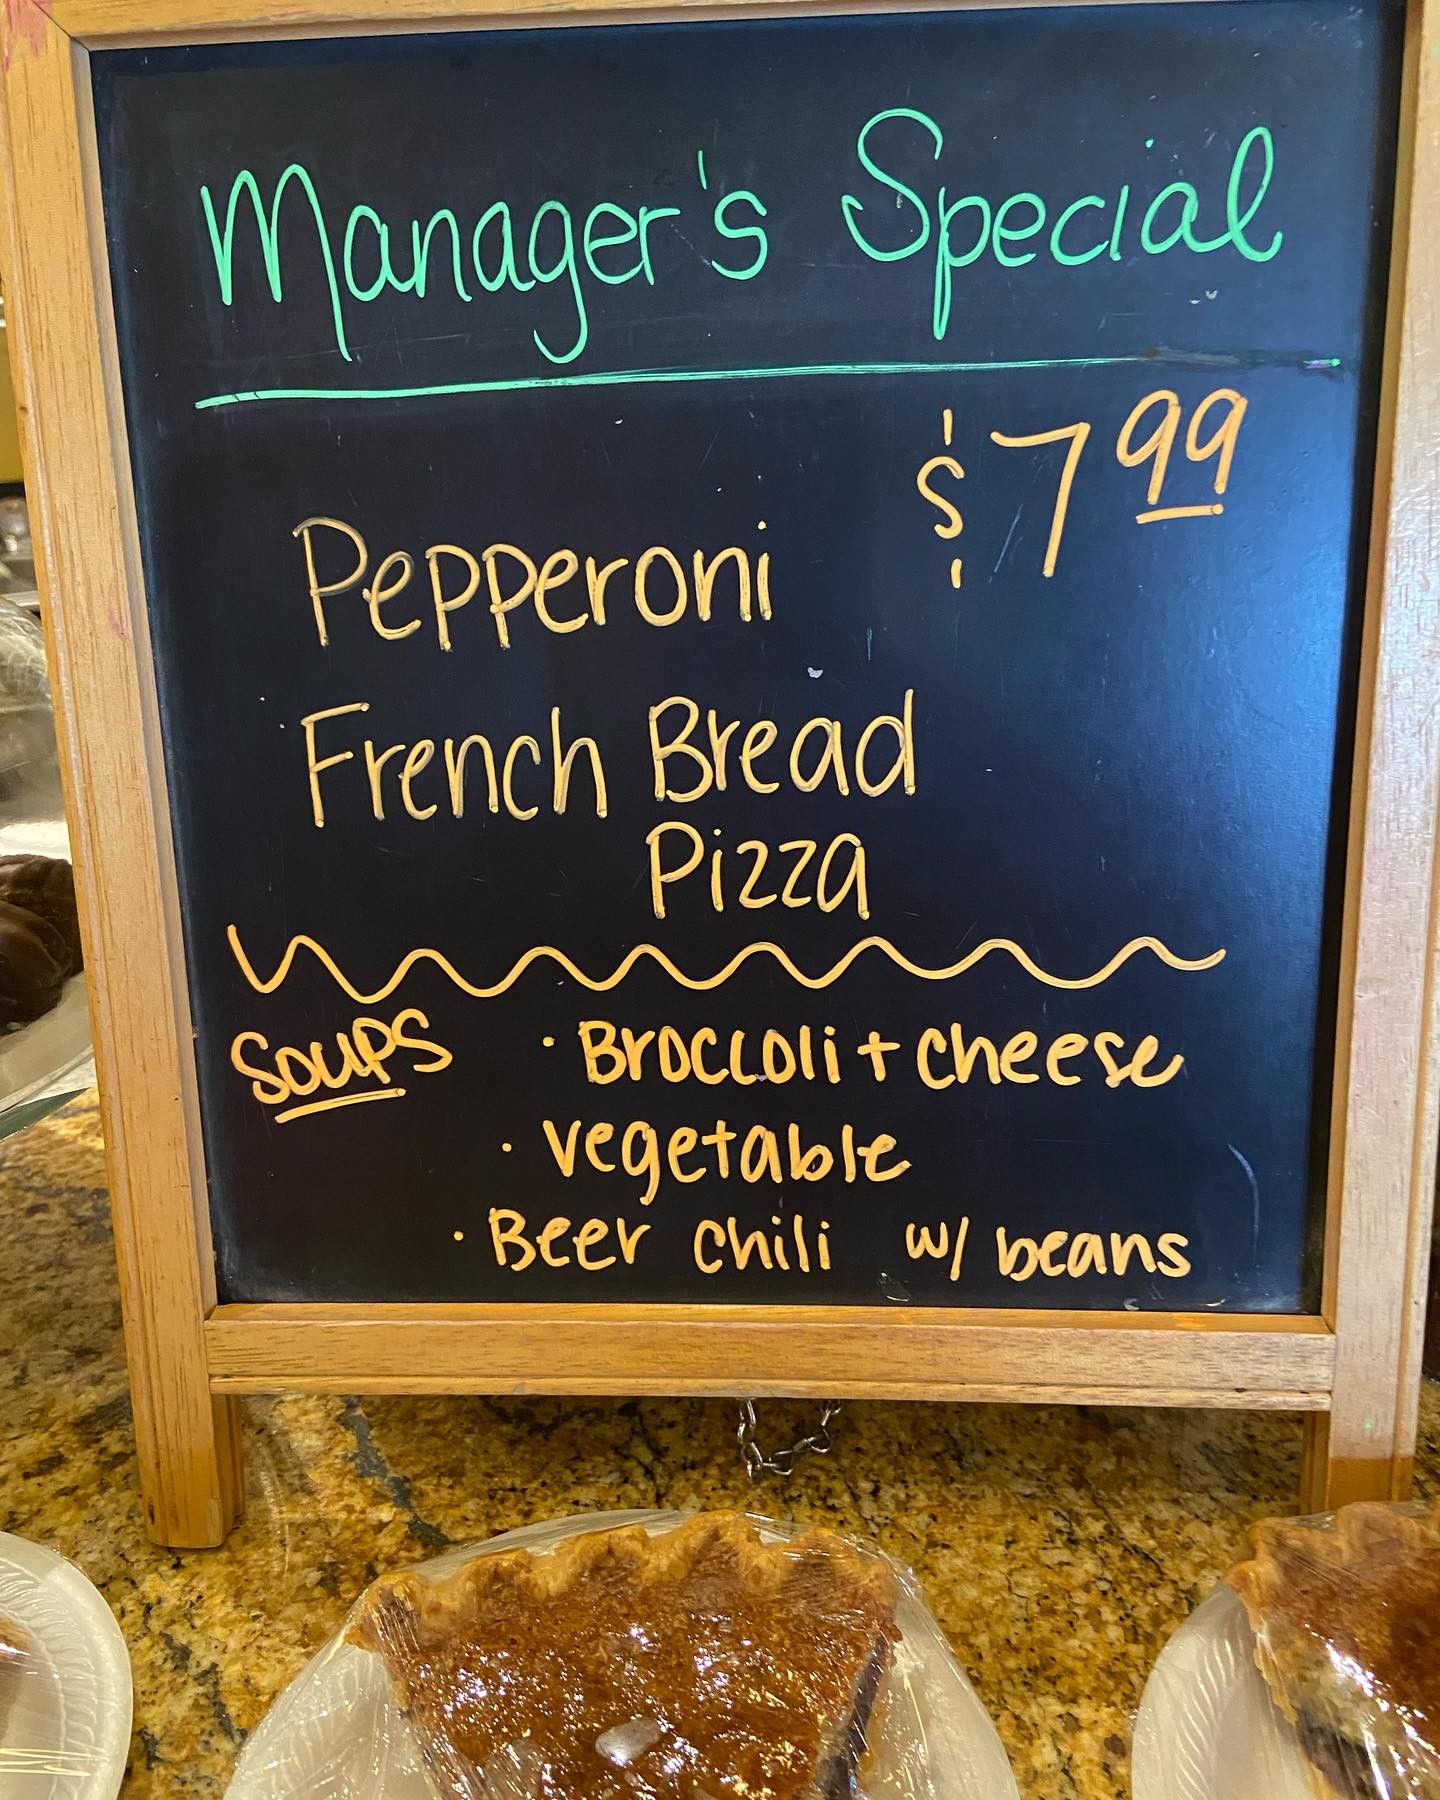 Manager's Special
$7.99
Pepperoni
French Bread
Pizza
Soups · Broccoli + cheese
· vegetable
· Beer chili w/ beans